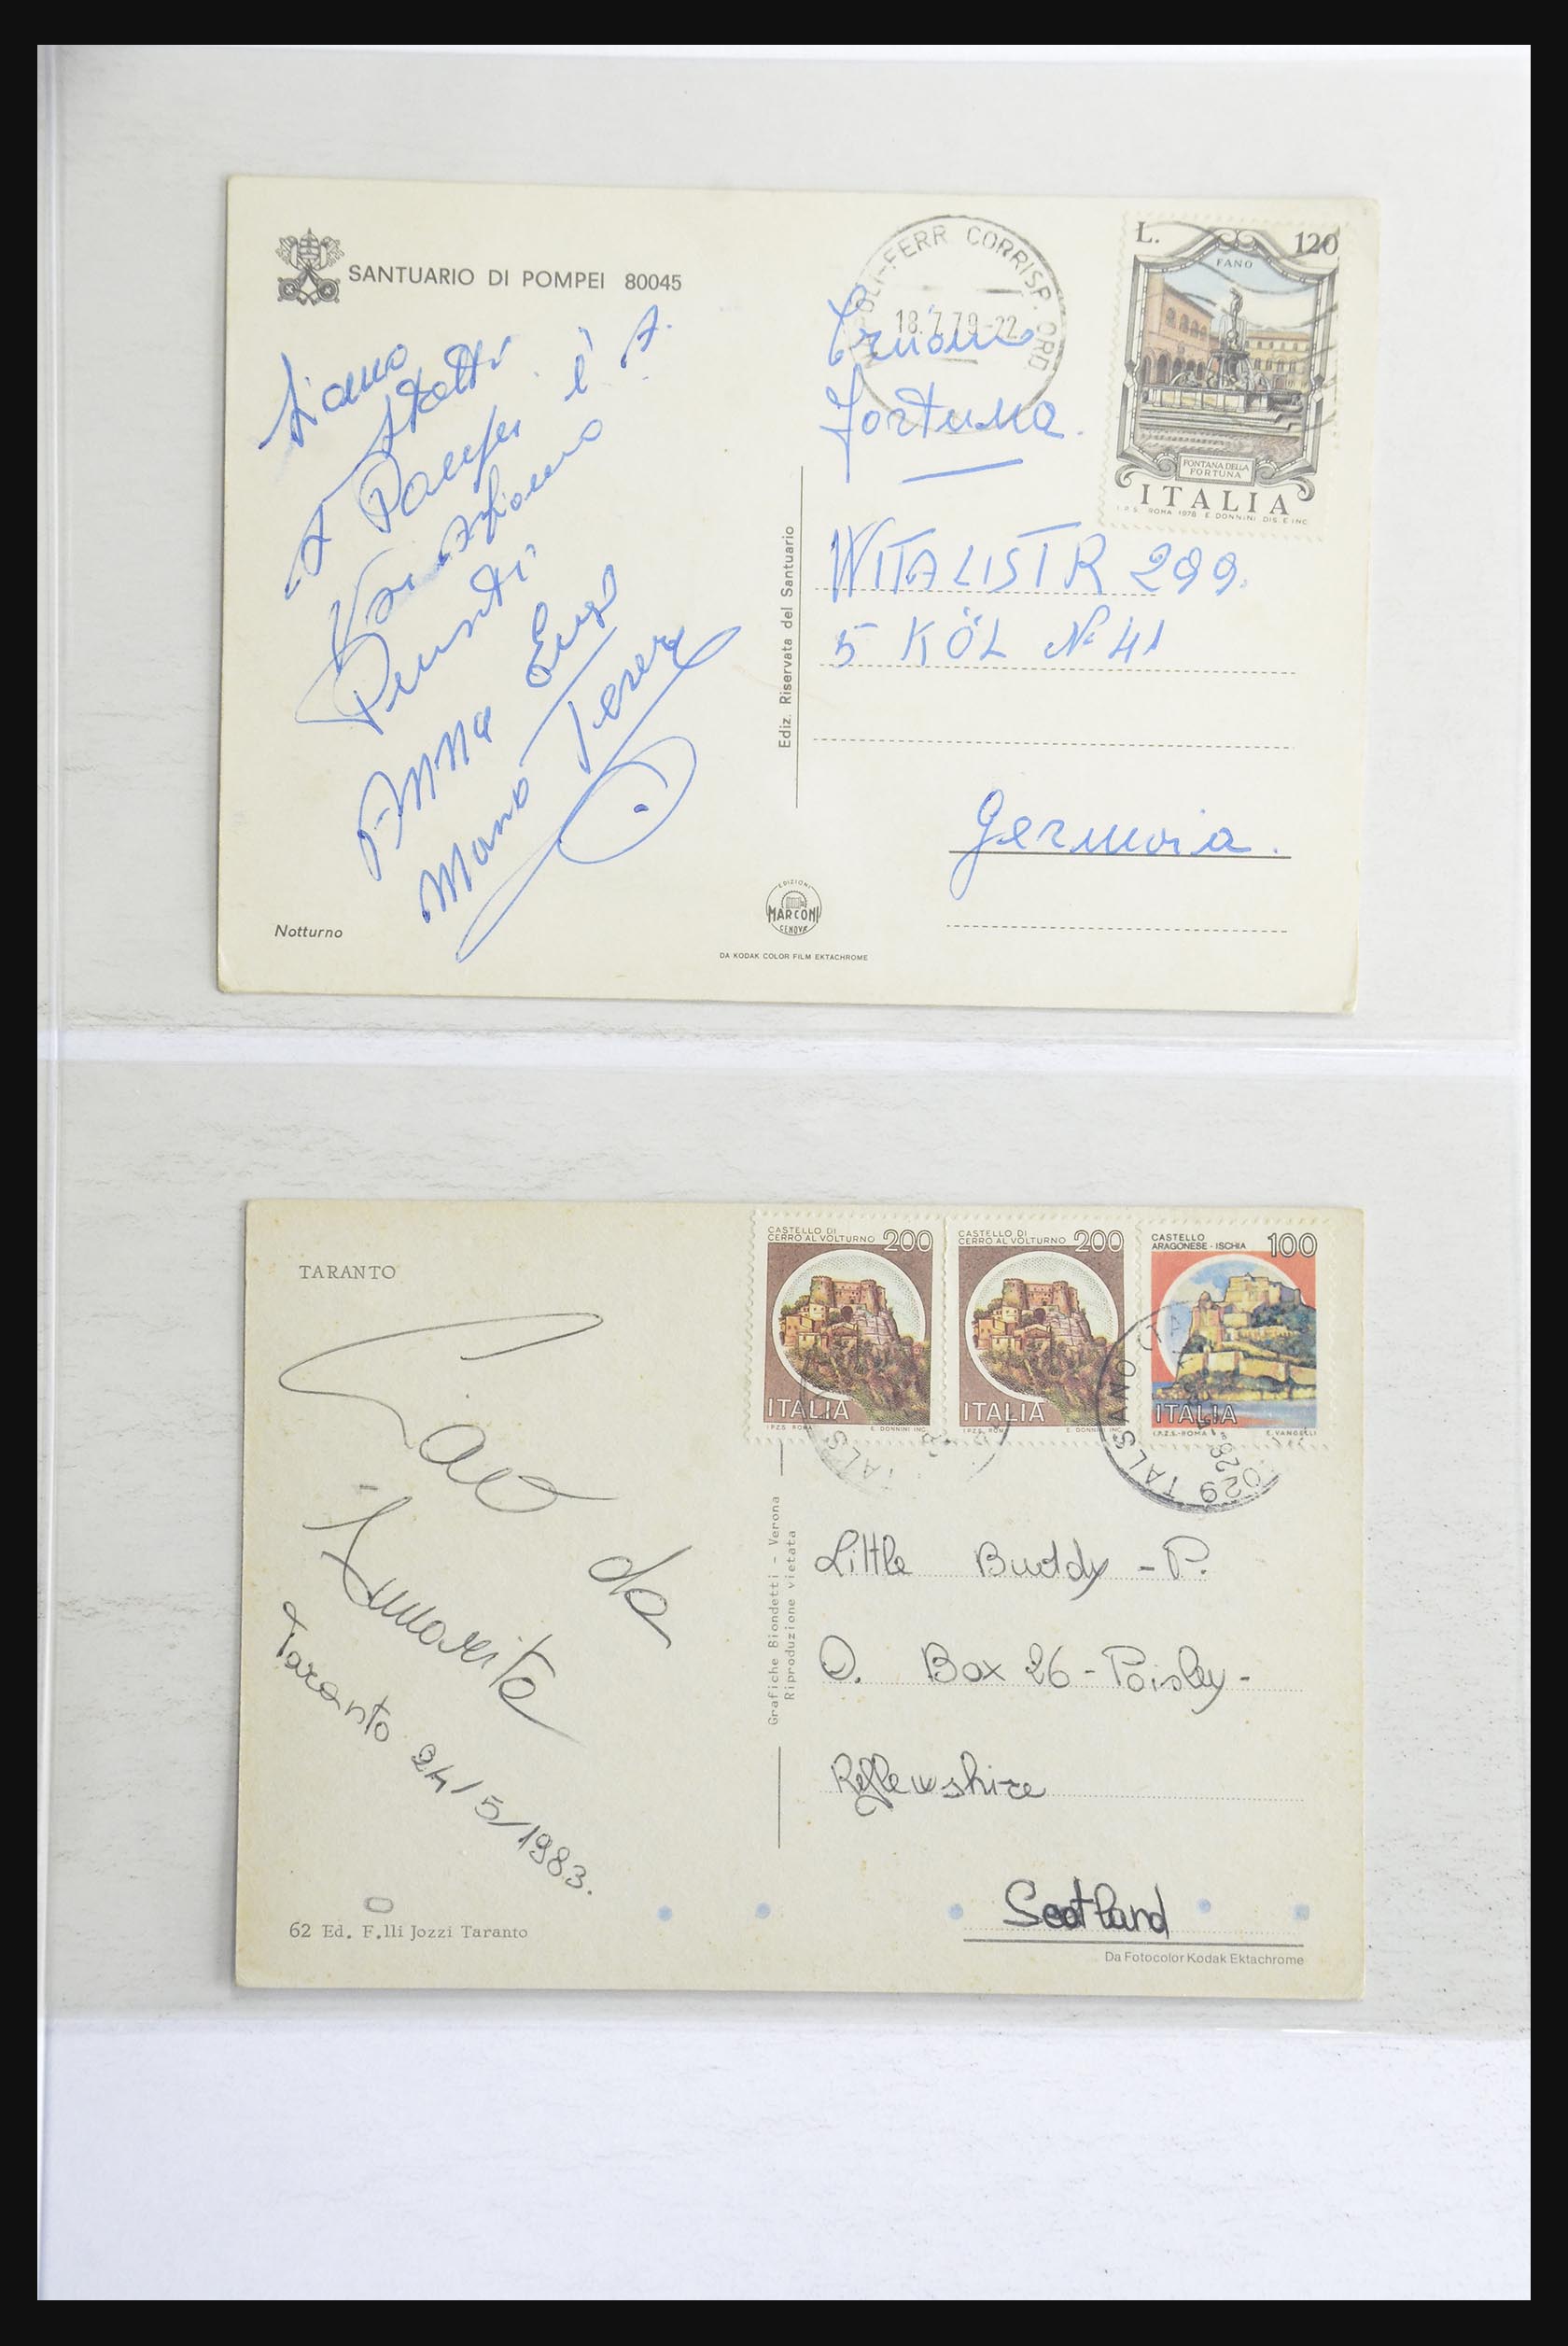 SANTUARIO DI POMPEI 80045
siamo
stati
A Pompei e A.
Vi
Anna Enzo
Mario Teresa
Notturno
Ediz. Riservata del Santuario
EDIZIONI
MARCONI
GENOVA
DA KODAK COLOR FILM EKTACHROME
NAPOLI-FERR CORRISP. ORD
18.7.79-22
L. 120
FANO
FONTANA DELLA
FORTUNA
ITALIA
I.P.S. ROMA 1978 E. DONNINI DIS. E INC.
Fortuna.
WITALISTR 299.
5 KÖL N 41
Germoia.
TARANTO
Ciao da
Annarita
Taranto 24/5/1983.
62 Ed. F.lli Jozzi Taranto
Grafiche Biondetti - Verona
Riproduzione vietata
CASTELLO DI
CERRO AL VOLTURNO 200
ITALIA
I.P.Z.S. ROMA E. DONNINI INC.
CASTELLO DI
CERRO AL VOLTURNO 200
ITALIA
I.P.Z.S. ROMA E. DONNINI INC.
CASTELLO
ARAGONESE - ISCHIA 100
ITALIA
I.P.Z.S. - ROMA E. VANGELLI
029 TALSANO (TA)
Little Buddy - P.
O. Box 26 - Paisley -
Reflewshire
Scotland
Da Fotocolor Kodak Ektachrome